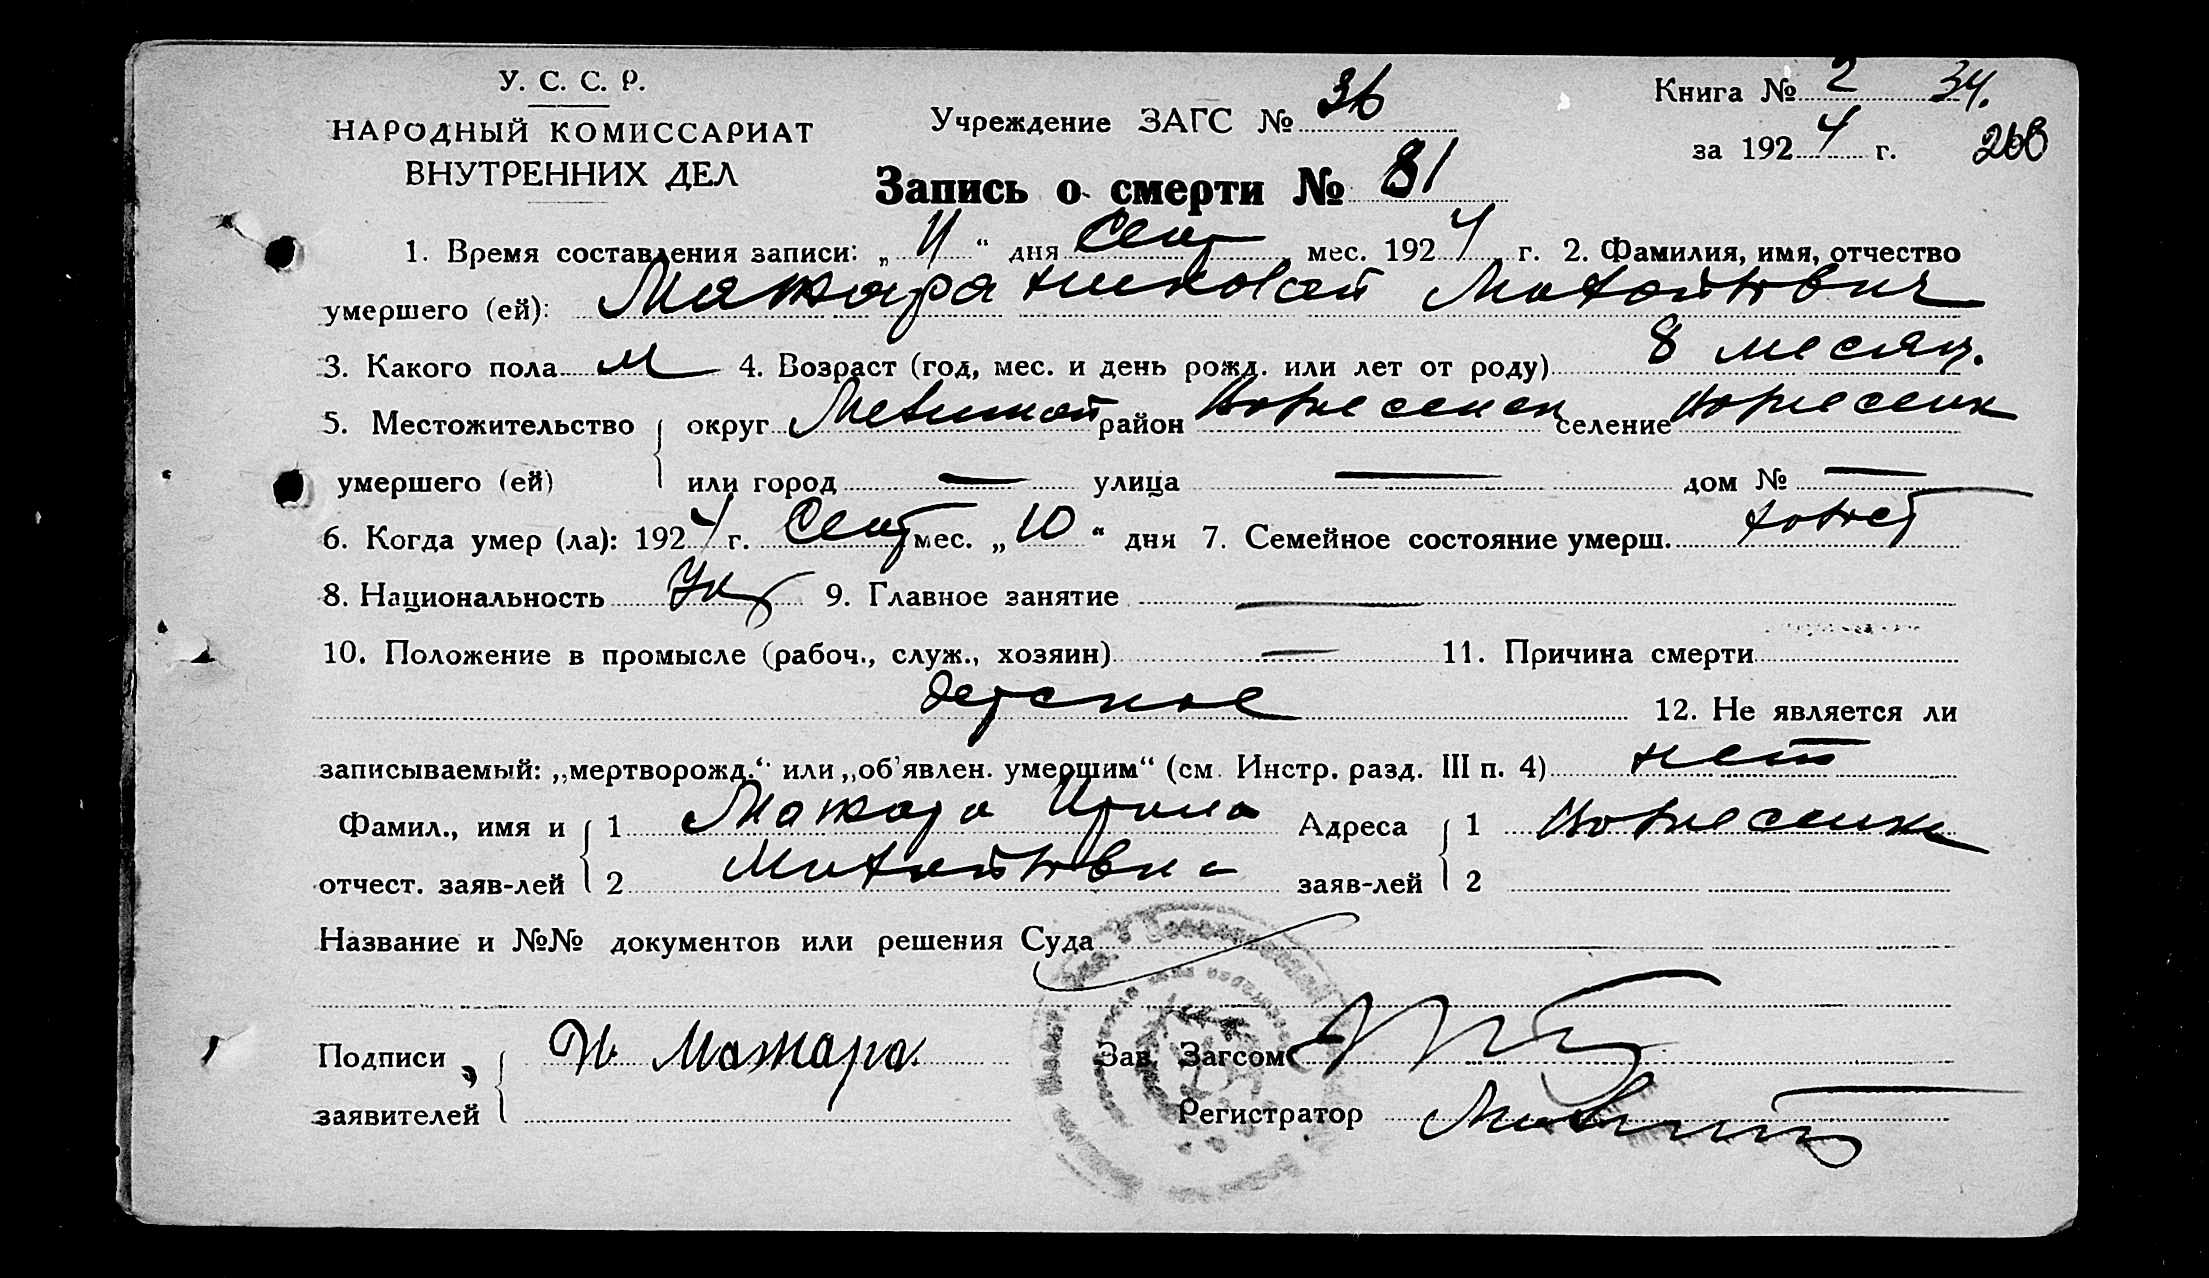 У. С. С. Р.
НАРОДНЫЙ КОМИССАРИАТ
ВНУТРЕННИХ ДЕЛ
Учреждение ЗАГС № 36
Книга № 2 34.
за 1924 г. 268
Запись о смерти № 81
1. Время составления записи: „ 11 “ дня Сент мес. 1924 г. 2. Фамилия, имя, отчество
умершего (ей): Мажара Николай Михайлович
3. Какого пола м 4. Возраст (год, мес. и день рожд. или лет от роду) 8 месяц.
5. Местожительство округ район селение
умершего (ей) или город — улица — дом № —
6. Когда умер (ла): 1924 г. Сент мес. „ 10 “ дня 7. Семейное состояние умерш. холост
8. Национальность Укр 9. Главное занятие —
10. Положение в промысле (рабоч., служ., хозяин) — 11. Причина смерти
детское 12. Не является ли
записываемый: „мертворожд.“ или „об'явлен. умершим“ (см. Инстр. разд. III п. 4) нет
Фамил., имя и 1 Мажара Адреса 1
отчест. заяв-лей 2 заяв-лей 2
Название и №№ документов или решения Суда
Подписи Мажара Зав. Загсом
заявителей Регистратор